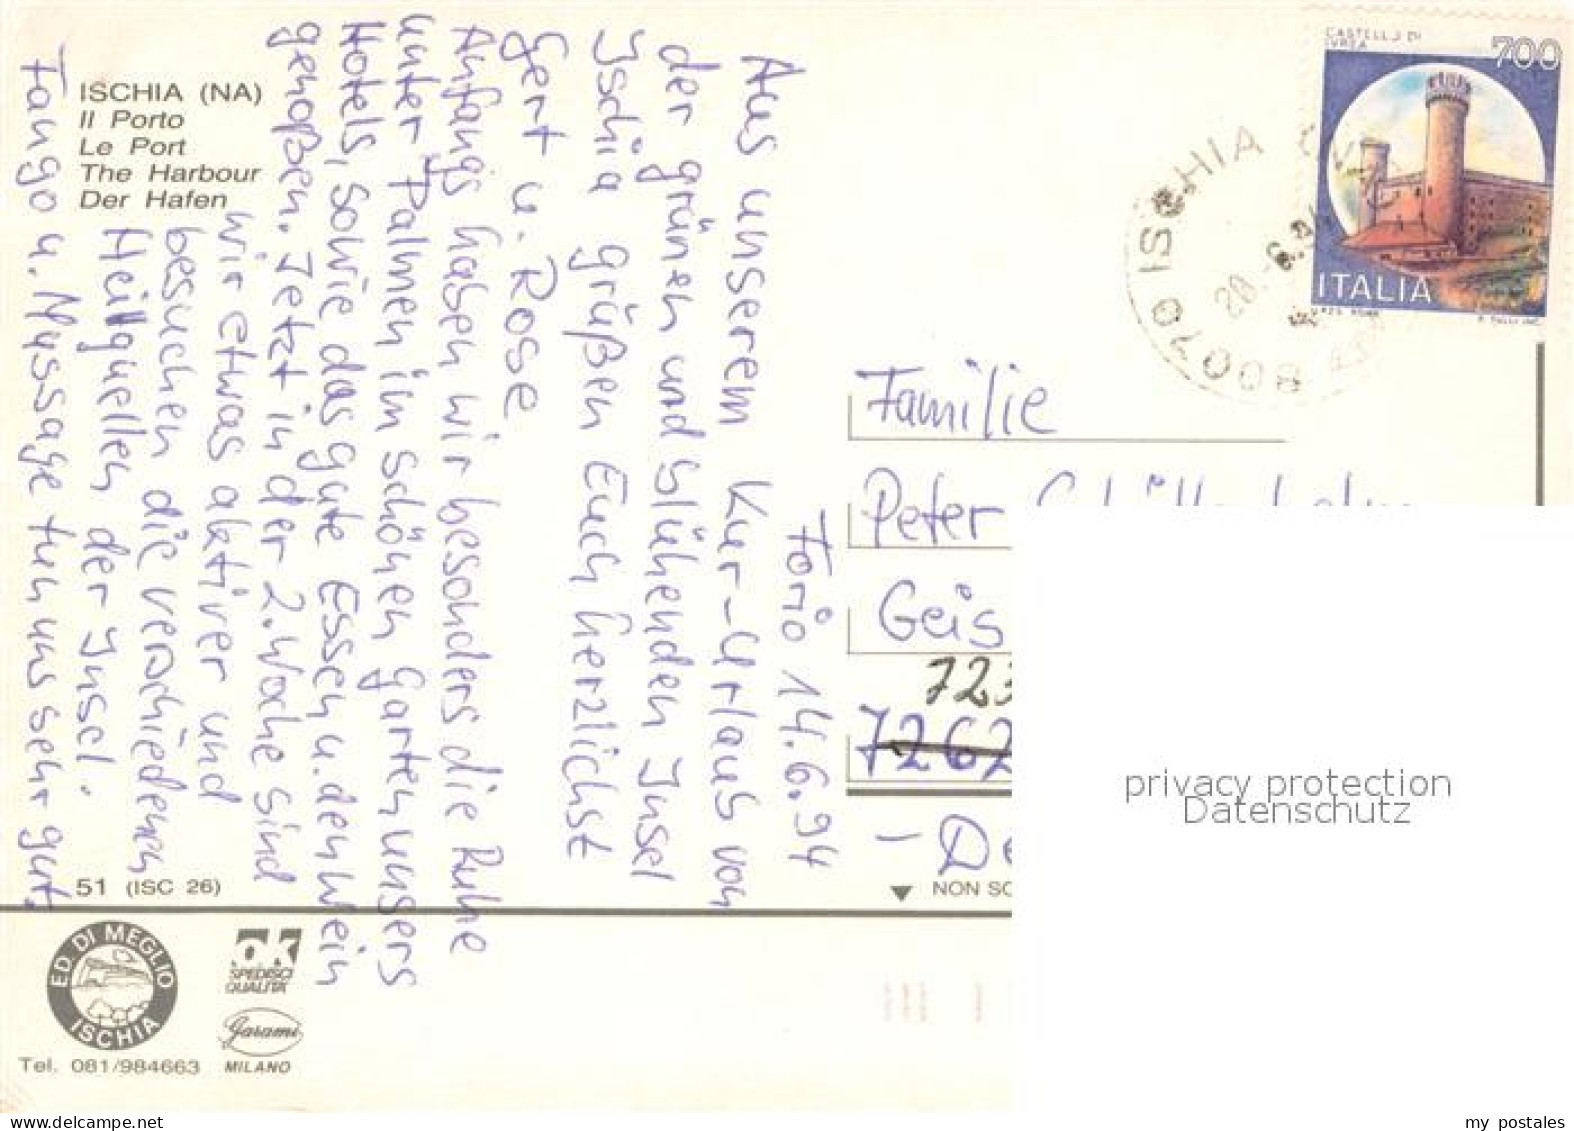 ISCHIA (NA)
Il Porto
Le Port
The Harbour
Der Hafen
Forio 14.6.94
Aus unserem Kur-Urlaub von
der grünen und blühenden Insel
Ischia grüßen Euch herzlichst
Gert u. Rose
Anfangs haben wir besonders die Ruhe
unter Palmen im schönen Garten unsers
Hotels, sowie das gute Essen u. den Wein
genoßen. Jetzt in der 2. Woche sind
wir etwas aktiver und
besuchen die verschiedenen
Heilquellen der Insel.
Fango u. Massage tun uns sehr gut.
CASTELLO DI
IVREA
700
ITALIA
80070 ISCHIA
20.6.94
Familie
Peter
Geis
723
7262
- De
51 (ISC 26)
NON SC
ED. DI MEGLIO
ISCHIA
Tel. 081/984663
OK
SPEDISCI
QUALITA'
Garami
MILANO
privacy protection
Datenschutz
www.ansichtskarten-center.de
my postales